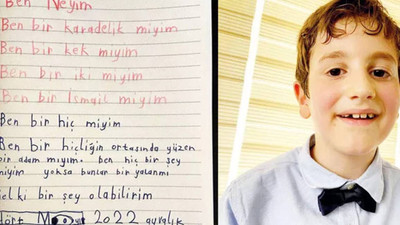 Ben Neyim
Ben bir karadelik miyim
Ben bir kek miyim
Ben bir iki miyim
Ben bir Ismail miyim
Ben bir hiç miyim
Ben bir hiçliğin ortasında yüzen
bir adam mıyım. ben hiç bir şey
miyim yoksa bunlar bir yalanmı
elki bir şey olabilirim
dört 2022 ayvalık